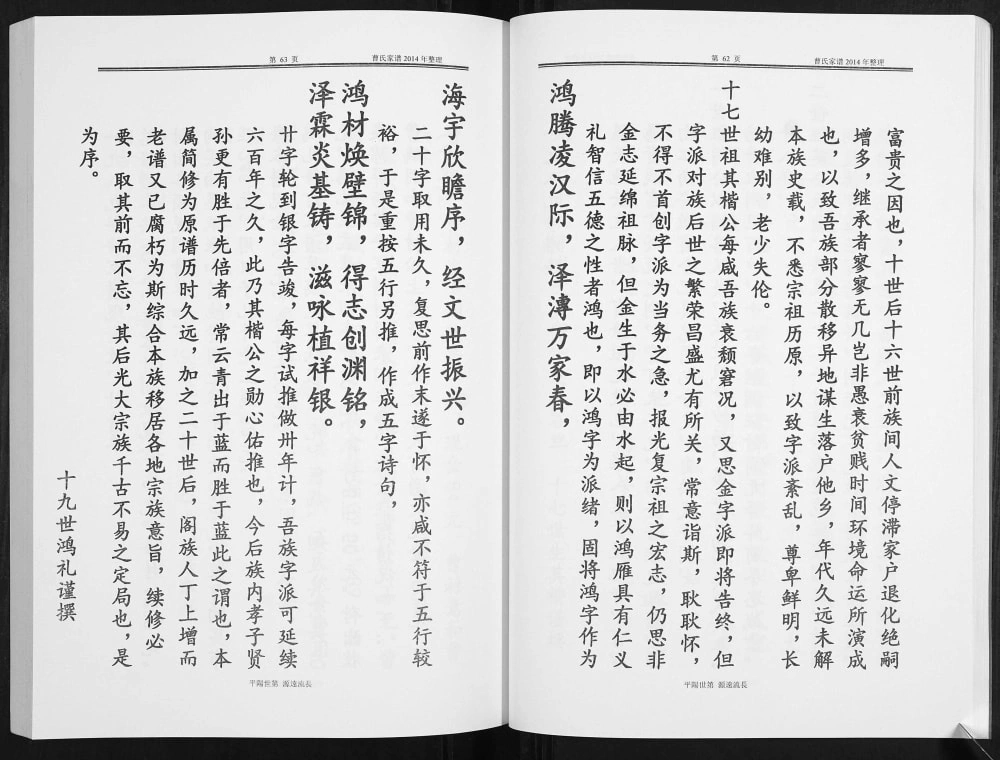 第 62 页
曹氏家谱 2014 年整理
富贵之因也，十世后十六世前族间人文停滞家户退化绝嗣
增多，继承者寥寥无几岂非愚衰贫贱时间环境命运所演成
也，以致吾族部分散移异地谋生落户他乡，年代久远未解
本族史载，不悉宗祖历原，以致字派紊乱，尊卑鲜明，长
幼难别，老少失伦。
十七世祖其楷公每戚吾族衰颓窘况，又思金字派即将告终，但
字派对族后世之繁荣昌盛尤有所关，常意诣斯，耿耿怀，
不得不首创字派为当务之急，报光复宗祖之宏志，仍思非
金志延绵祖脉，但金生于水必由水起，则以鸿雁具有仁义
礼智信五德之性者鸿也，即以鸿字为派绪，固将鸿字作为
鸿腾凌汉际，泽溥万家春，
平陽世第 源遠流長
第 63 页
曹氏家谱 2014 年整理
海宇欣瞻序，经文世振兴。
二十字取用未久，复思前作末遂于怀，亦咸不符于五行较
裕，于是重按五行另推，作成五字诗句，
鸿材焕壁锦，得志创渊铭，
泽霖炎基铸，滋咏植祥银。
廿字轮到银字告竣，每字试推做卅年计，吾族字派可延续
六百年之久，此乃其楷公之勋心佑推也，今后族内孝子贤
孙更有胜于先倍者，常云青出于蓝而胜于蓝此之谓也，本
属简修为原谱历时久远，加之二十世后，阁族人丁上增而
老谱又已腐朽为斯综合本族移居各地宗族意旨，续修必
要，取其前而不忘，其后光大宗族千古不易之定局也，是
为序。
十九世鸿礼谨撰
平陽世第 源遠流長